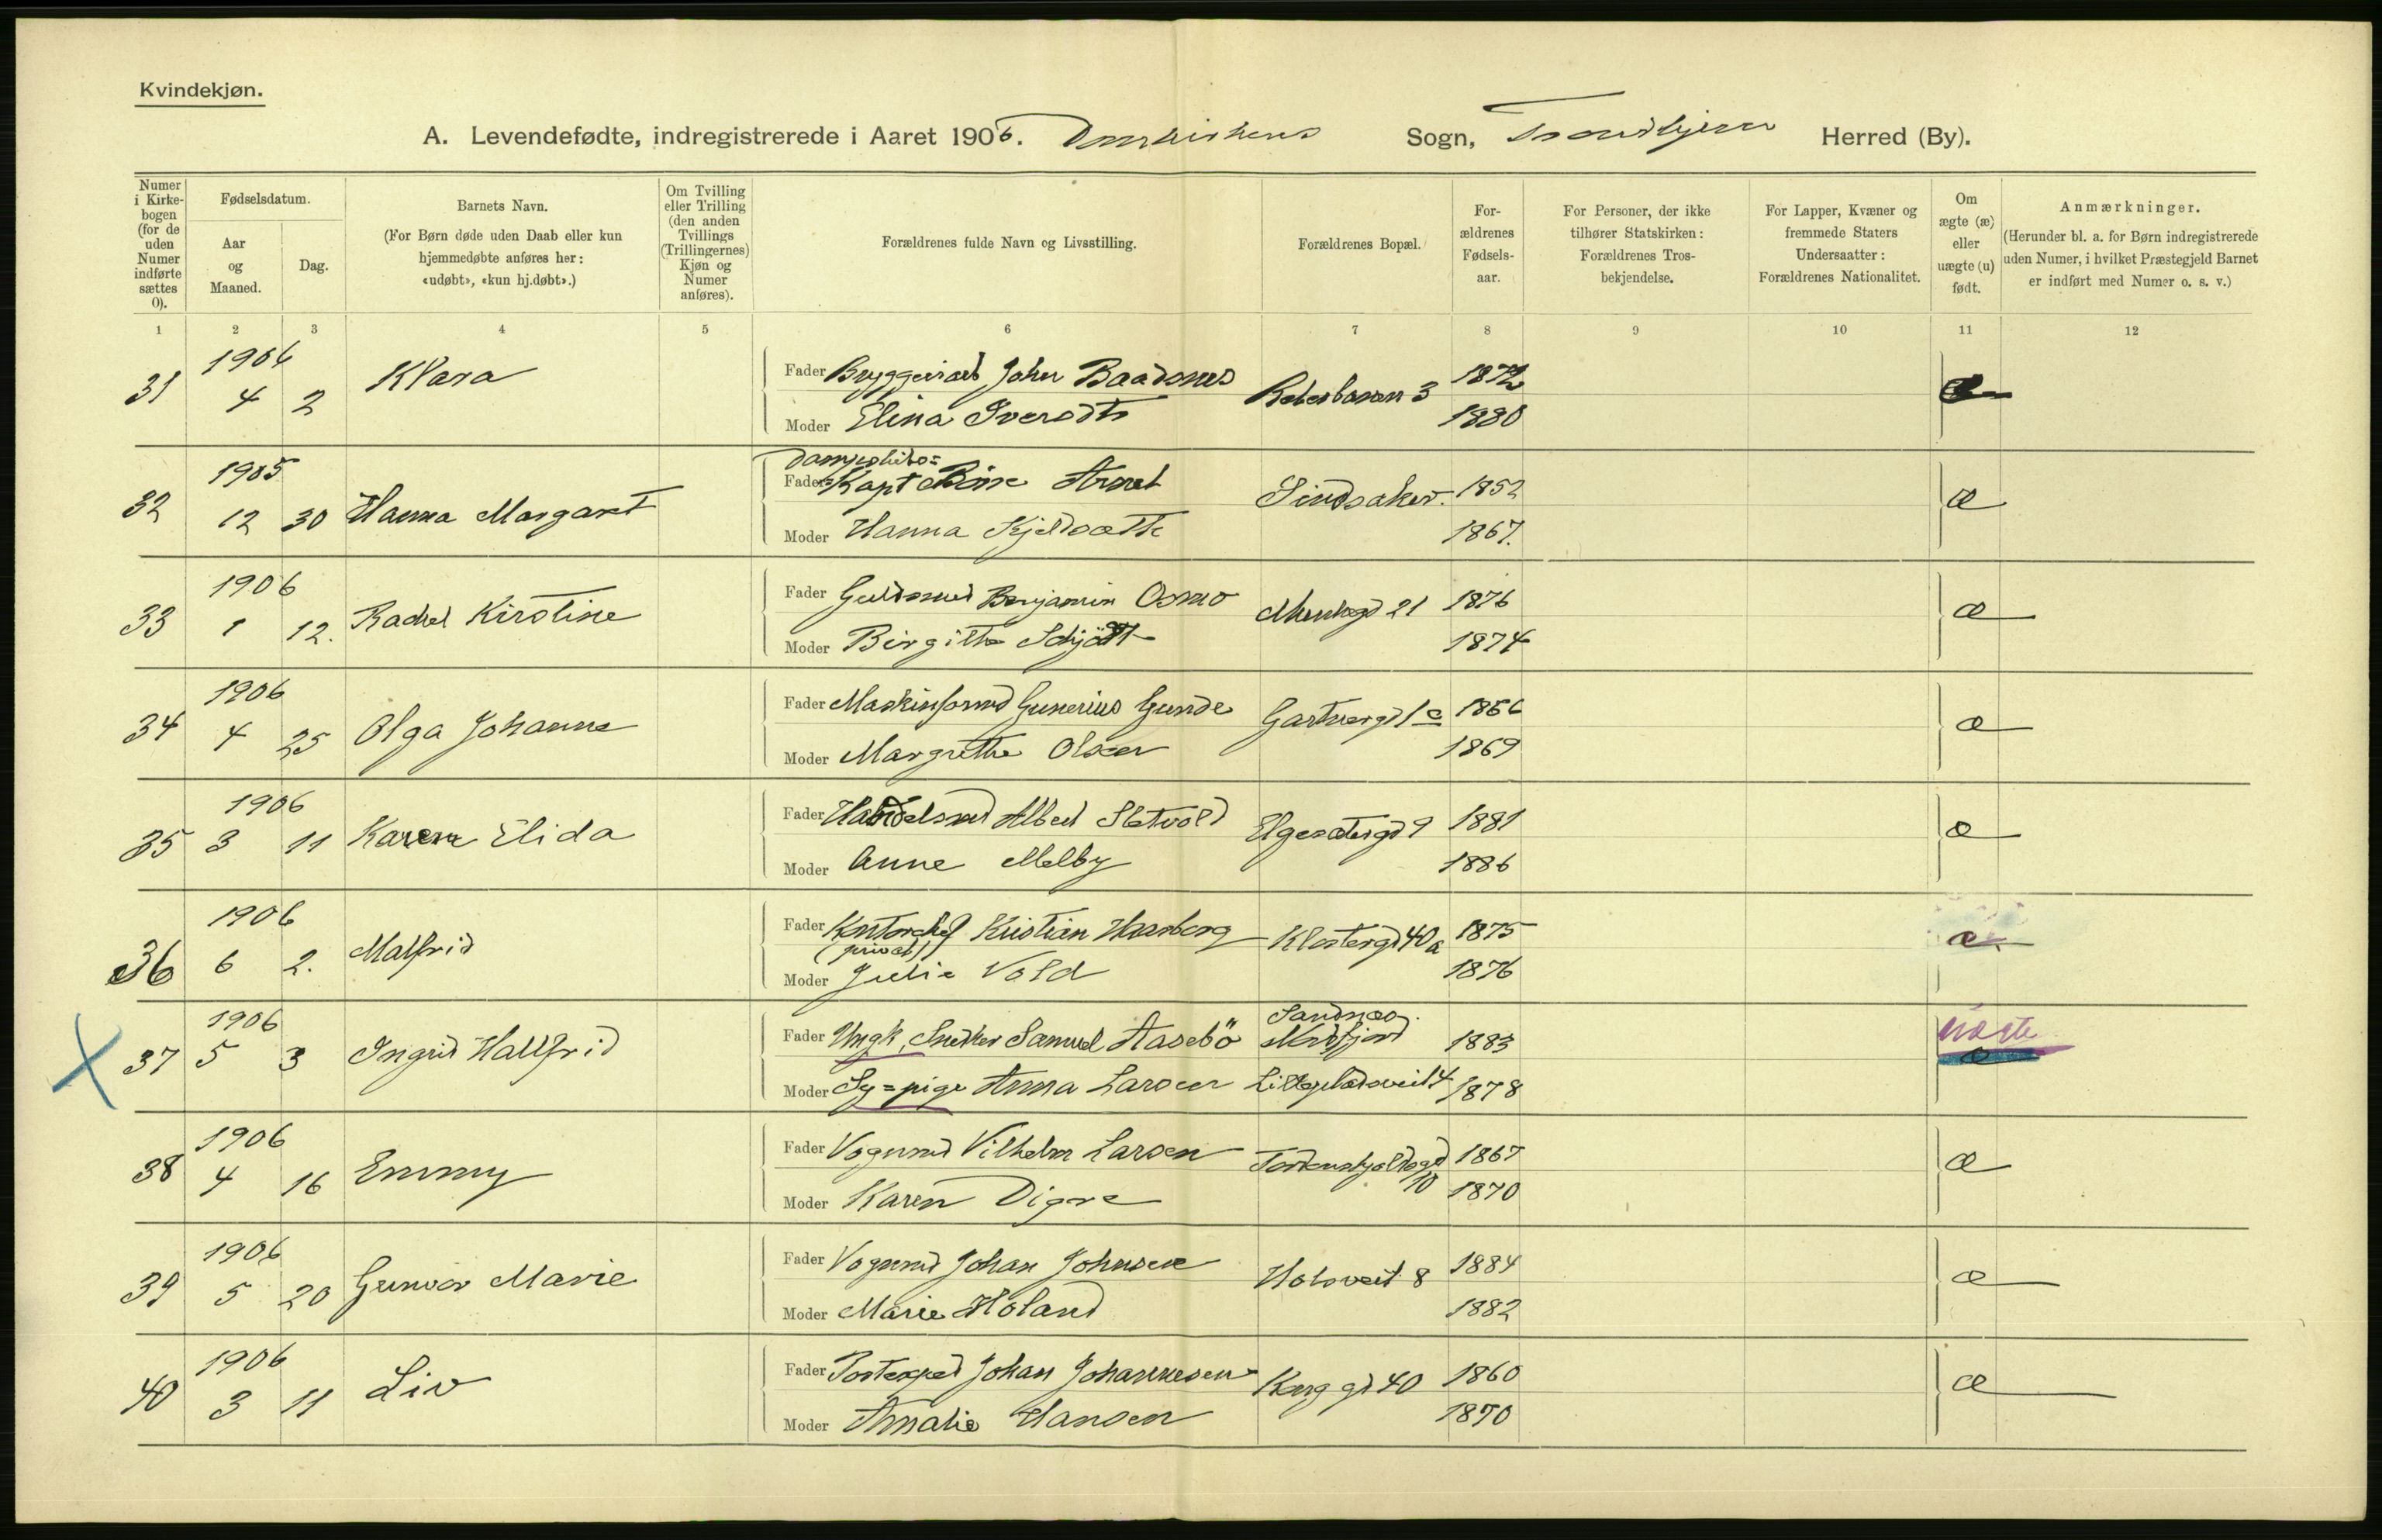 Kvindekjøn.
A. Levendefødte, indregistrerede i Aaret 1906. Domkirkens Sogn, Trondhjem Herred (By).
Numer i Kirkebogen (for de uden Numer indførte sættes 0).
Fødselsdatum.
Aar og Maaned.
Dag.
Barnets Navn.
(For Børn døde uden Daab eller kun hjemmedøbte anføres her: «udøbt», «kun hj.døbt».)
Om Tvilling eller Trilling (den anden Tvillings (Trillingernes) Kjøn og Numer anføres).
Forældrenes fulde Navn og Livsstilling.
Forældrenes Bopæl.
Forældrenes Fødselsaar.
For Personer, der ikke tilhører Statskirken: Forældrenes Trosbekjendelse.
For Lapper, Kvæner og fremmede Staters Undersaatter: Forældrenes Nationalitet.
Om ægte (æ) eller uægte (u) født.
Anmærkninger.
(Herunder bl. a. for Børn indregistrerede uden Numer, i hvilket Præstegjeld Barnet er indført med Numer o. s. v.)
1 2 3 4 5 6 7 8 9 10 11 12
31 1906 4 2 Klara Fader Bryggeriarb John Baadsnes 3 1872 æ
Moder Elina 1880
32 1905 12 30 Hanna Margaret Fader Dampskibs= Kapt Arnet Sindsaker. 1852 æ
Moder Hanna 1867.
33 1906 1 12. Rachel Kirstine Fader Guldsmed Benjamin Osmo Munkegd 21 1876 æ
Moder Birgitte Schjött 1874
34 1906 4 25 Olga Johanne Fader Maskinformd Gunerius Gunde Gartnergd 1c 1866 æ
Moder Margrethe Olsen 1869
35 1906 3 11 Karen Elida Fader Handelsmd Albert Sletvold Elgesætergd 9 1881 æ
Moder Anne Melby 1886
36 1906 6 2. Malfrid Fader Kontorchef (privat) Kristian Haarberg Klostergd 40a 1875 æ
Moder Julie Vold 1876
37 1906 5 3 Ingrid Hallfrid Fader Ungk. Snedker Samuel Aasebö Sandnes 1883 uægte
Moder Sy=pige Anna Larsen 1878
38 1906 4 16 Emmy Fader Vognmd Vilhelm Larsen Tordenskjoldsgd 10 1867 æ
Moder Karen Digre 1870
39 1906 5 20 Gunvor Marie Fader Vognmd Johan Johnsen 8 1884 æ
Moder Marie Høland 1882
40 1906 3 11 Liv Fader Postexped Johan Johannesen Kongg gd 40 1860 æ
Moder Amalie Hansen 1870